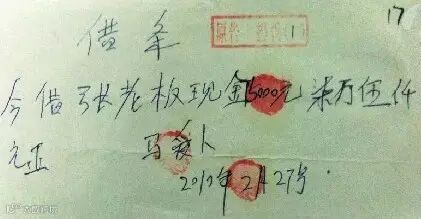 17
借条
今借张老板现金5000元 柒万伍仟
元正 马
年2月27号